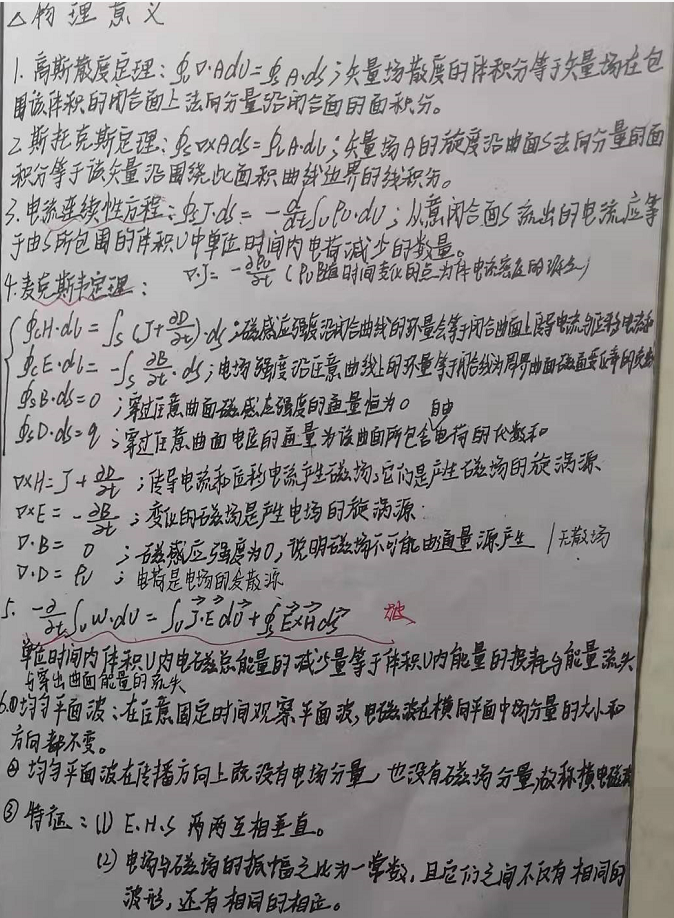 △物理意义
1. 高斯散度定理：∮ᵥ∇·AdU=∮ₛA·ds；矢量场散度的体积分等于矢量场在包
围该体积的闭合面上法向分量沿闭合面的面积分。
2. 斯托克斯定理：∮ₛ∇×Ads=∮ₗA·dl；矢量场A的旋度沿曲面S法向分量的面
积分等于该矢量沿围绕此面积曲线边界的线积分。
3. 电流连续性方程：∮ₛJ·ds = -d/dt∫ᵤρᵤ·dU；从意闭合面S流出的电流应等
于由S所包围的体积U中单位时间内电荷减少的数量。
∇·J= -∂ρᵤ/∂t (ρᵤ随时间变化的点为体电流密度的源点)
4. 麦克斯韦定理：
∮cH·dl = ∫ₛ(J+∂D/∂t)·ds；磁感应强度沿闭合曲线的环量会等于闭合曲面上传导电流与位移电流和
∮cE·dl = -∫ₛ ∂B/∂t·ds；电场强度沿任意曲线上的环量等于闭合线为周界曲面磁通变化率的
∮ₛB·ds=0；穿过任意曲面磁感应强度的通量恒为0 自由
∮ₛD·ds=q；穿过任意曲面电位的通量为该曲面所包含电荷的代数和
∇×H=J+∂D/∂t；传导电流和位移电流产生磁场，它们是产生磁场的旋涡源
∇×E= -∂B/∂t；变化的磁场是产生电场的旋涡源.
∇·B= 0；磁感应强度为0，说明磁场不可能由通量源产生 /无散场
∇·D=ρᵤ；电荷是电场的发散源
5. -∂/∂t∫ᵤW·dU=∫ᵤJ·EdU+∮ₛE×Hds 坡
单位时间内体积U内电磁总能量的减少量等于体积U内能量的损耗与能量流失
与穿出曲面能量的流失
6.①均匀平面波：在任意固定时间观察平面波，电磁波在横向平面中场分量的大小和
方向都不变。
② 均匀平面波在传播方向上既没有电场分量，也没有磁场分量，故称横电磁波
③ 特征：(1) E.H.S 两两互相垂直。
(2) 电场与磁场的振幅之比为一常数，且它们之间不仅有相同的
波形，还有相同的相位。